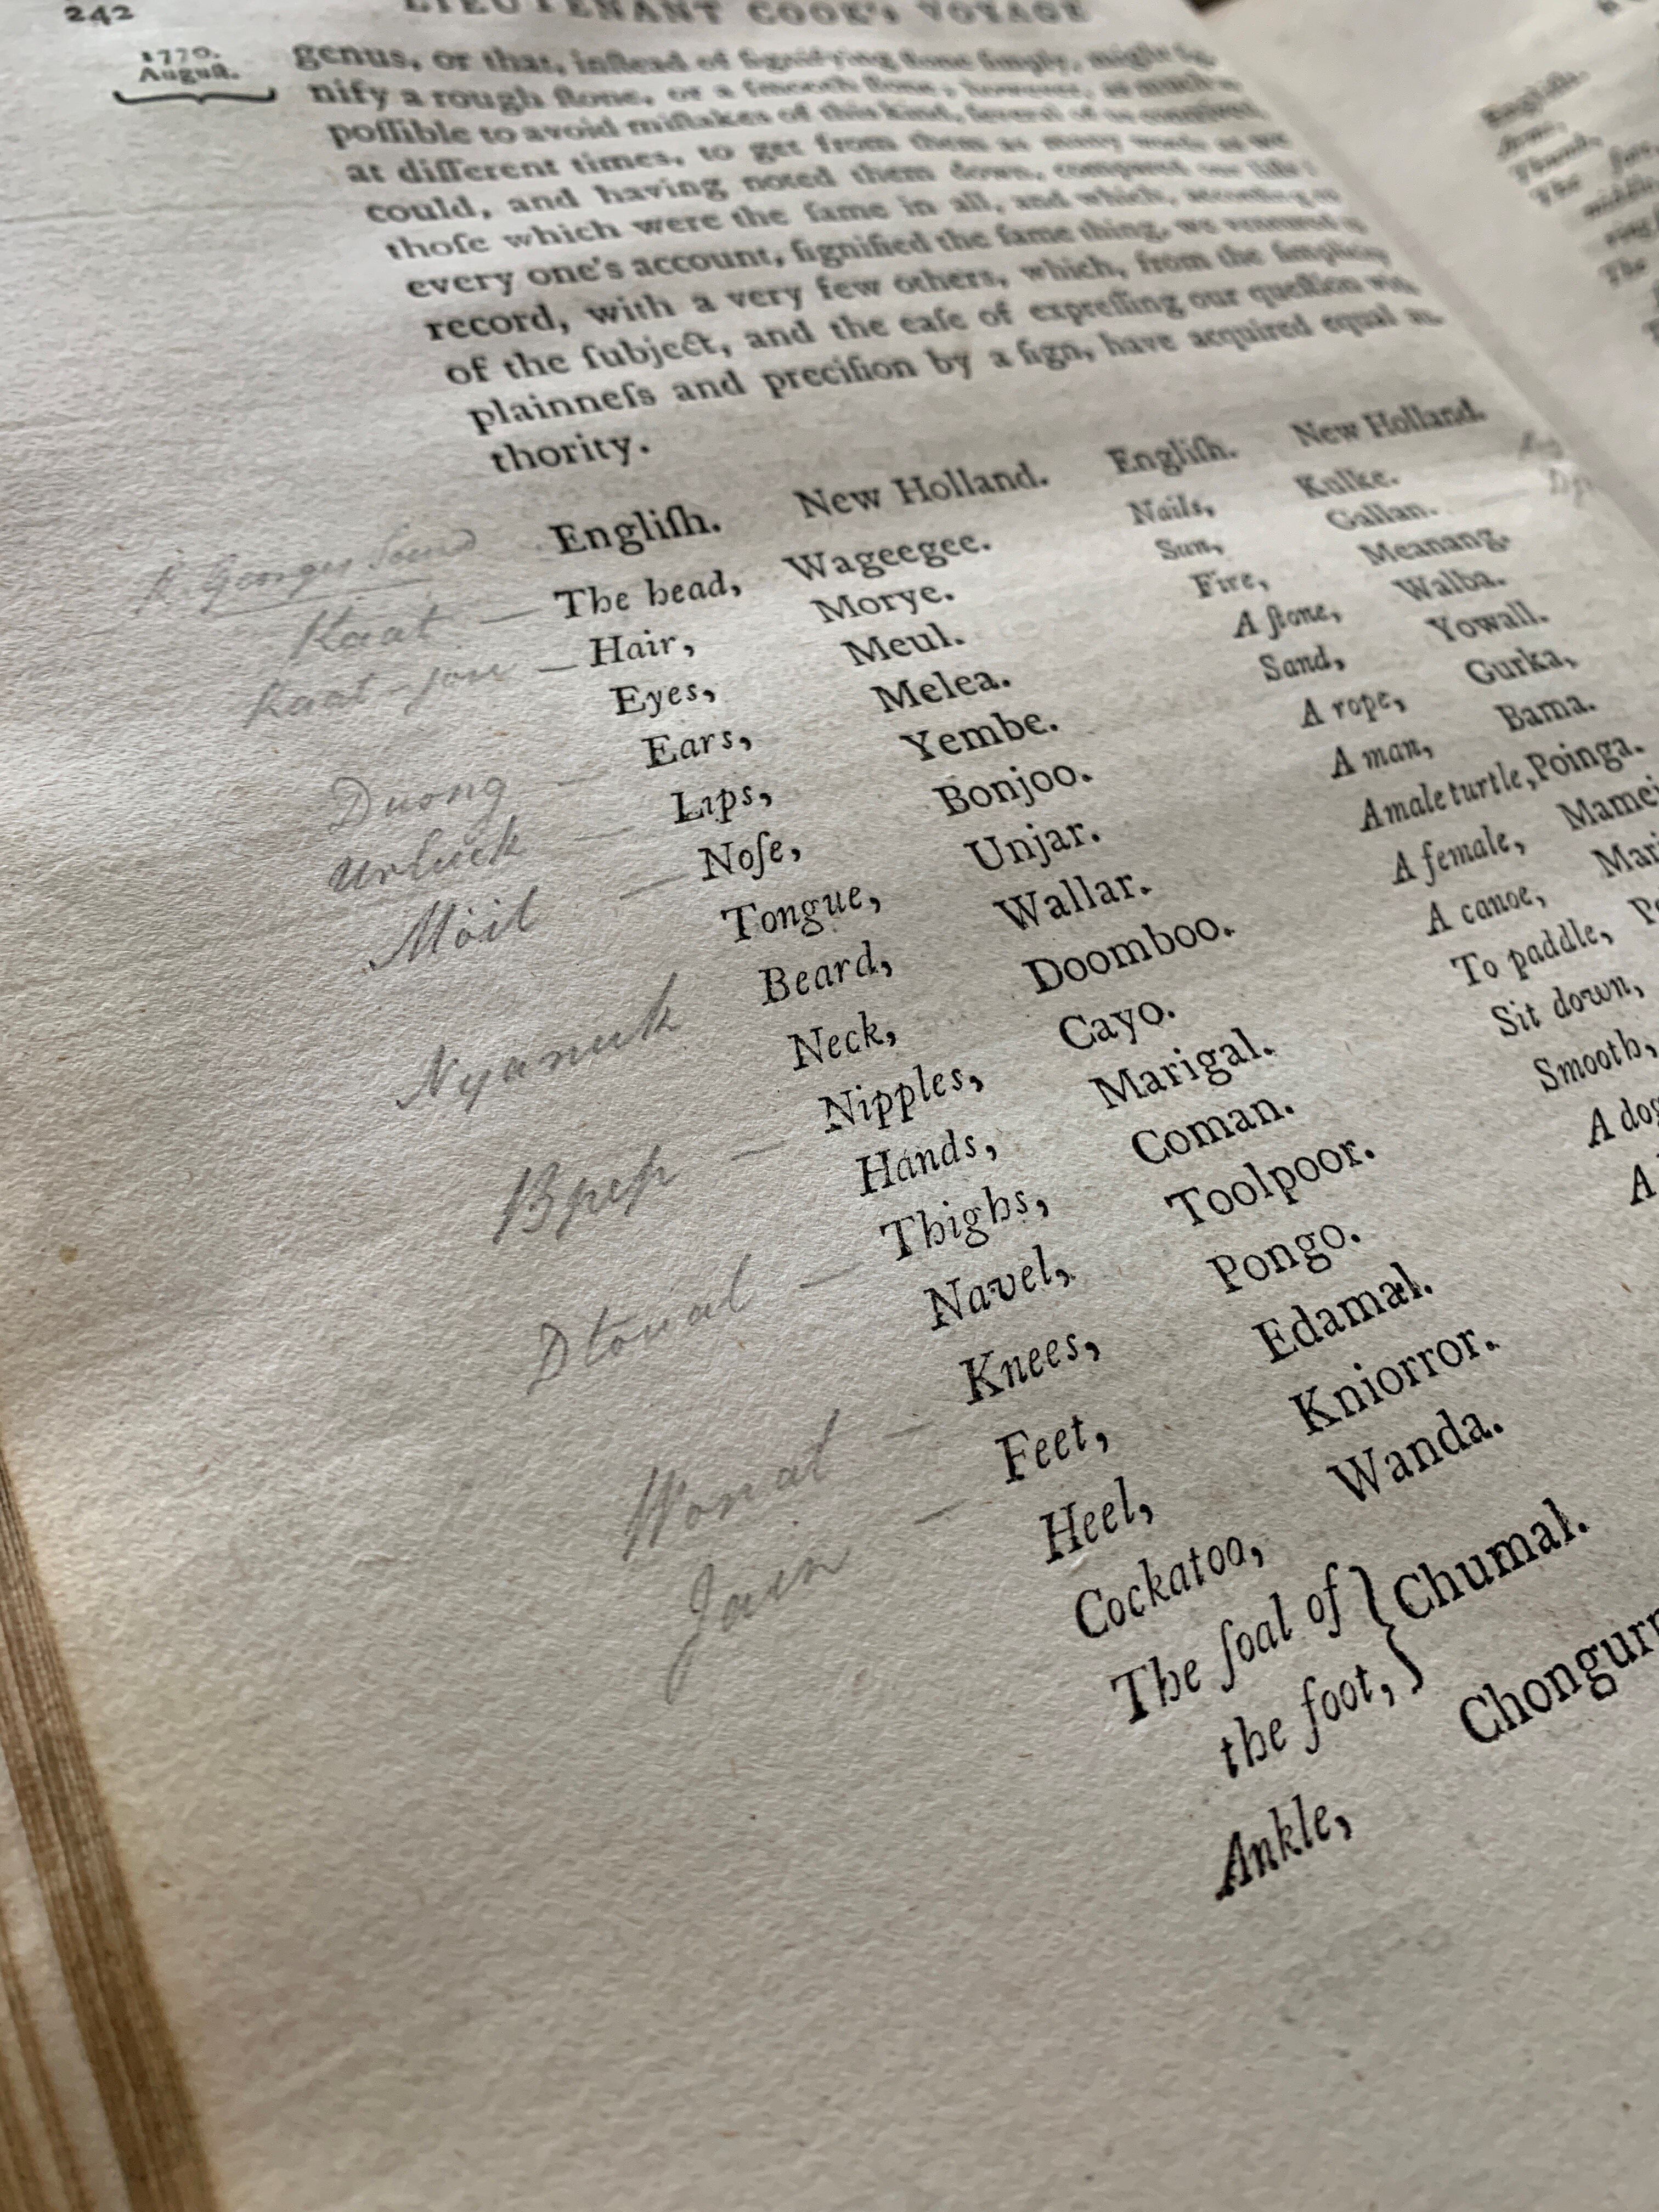 242 LIEUTENANT COOK's VOYAGE
1770.
Auguſt.
genus, or that, inſtead of ſignifying ſtone ſimply, might ſig-
nify a rough ſtone, or a ſmooth ſtone; however, as much as
poſſible to avoid miſtakes of this kind, ſeveral of us contrived,
at different times, to get from them as many words as we
could, and having noted them down, compared our liſts:
thoſe which were the ſame in all, and which, according to
every one's account, ſignified the ſame thing, we ventured to
record, with a very few others, which, from the ſimplicity
of the ſubject, and the eaſe of expreſſing our queſtion with
plainneſs and preciſion by a ſign, have acquired equal au-
thority.
K. Georges Sound
Kaat —
Kaat-jou —
Duong —
Urluck —
Möil —
Nyanuk
Bpep —
Dtoual —
Wonat —
Jain —
Engliſh. New Holland.
The head, Wageegee.
Hair, Morye.
Eyes, Meul.
Ears, Melea.
Lips, Yembe.
Noſe, Bonjoo.
Tongue, Unjar.
Beard, Wallar.
Neck, Doomboo.
Nipples, Cayo.
Hands, Marigal.
Thighs, Coman.
Navel, Toolpoor.
Knees, Pongo.
Feet, Edamal.
Heel, Kniorror.
Cockatoo, Wanda.
The ſoal of } Chumal.
the foot,
Ankle, Chongurn
Engliſh. New Holland.
Nails, Kulke.
Sun, Gallan.
Fire, Meanang.
A ſtone, Walba.
Sand, Yowall.
A rope, Gurka,
A man, Bama.
A male turtle, Poinga.
A female, Mamei
A canoe, Mari
To paddle, Pe
Sit down,
Smooth,
A dog
A
Engliſh.
Arms,
Thumb,
The fore,
The